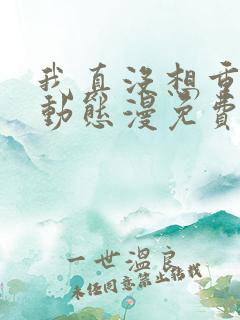 我真沒想重
動態漫免費
一世溫良
未经同意禁止转载